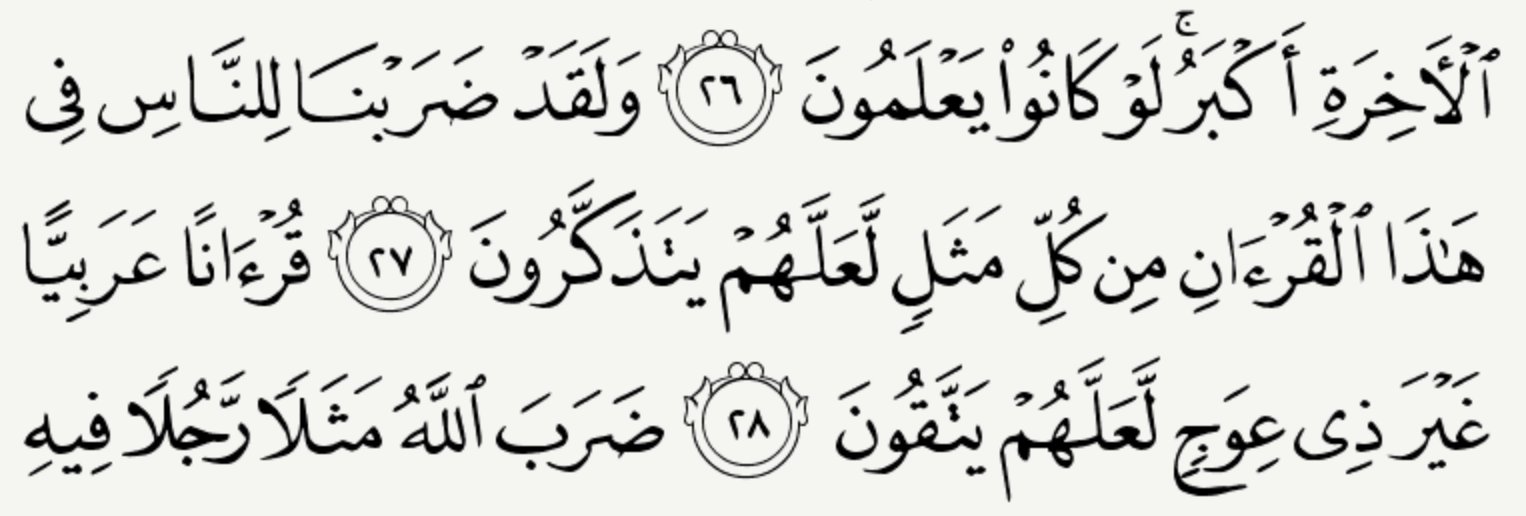 ٱلْأَخِرَةِ أَكْبَرُ ۚ لَوْ كَانُوا۟ يَعْلَمُونَ ٢٦ وَلَقَدْ ضَرَبْنَا لِلنَّاسِ فِى
هَٰذَا ٱلْقُرْءَانِ مِن كُلِّ مَثَلٍ لَّعَلَّهُمْ يَتَذَكَّرُونَ ٢٧ قُرْءَانًا عَرَبِيًّا
غَيْرَ ذِى عِوَجٍ لَّعَلَّهُمْ يَتَّقُونَ ٢٨ ضَرَبَ ٱللَّهُ مَثَلًا رَّجُلًا فِيهِ